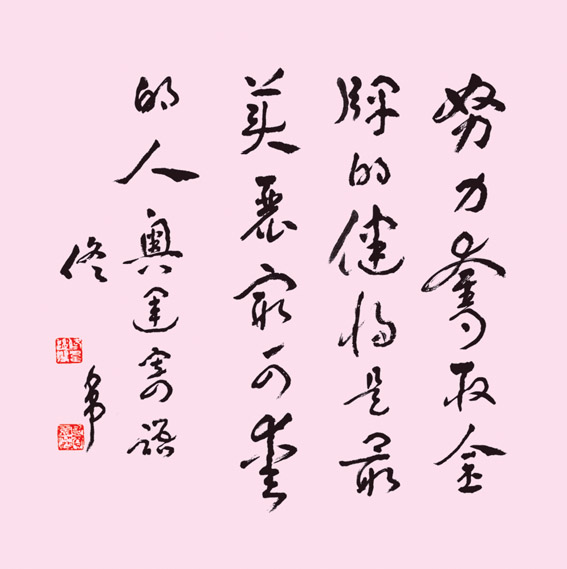 努力奪取金
牌的健将是最
美最可愛
的人奥运寄语
佟韦